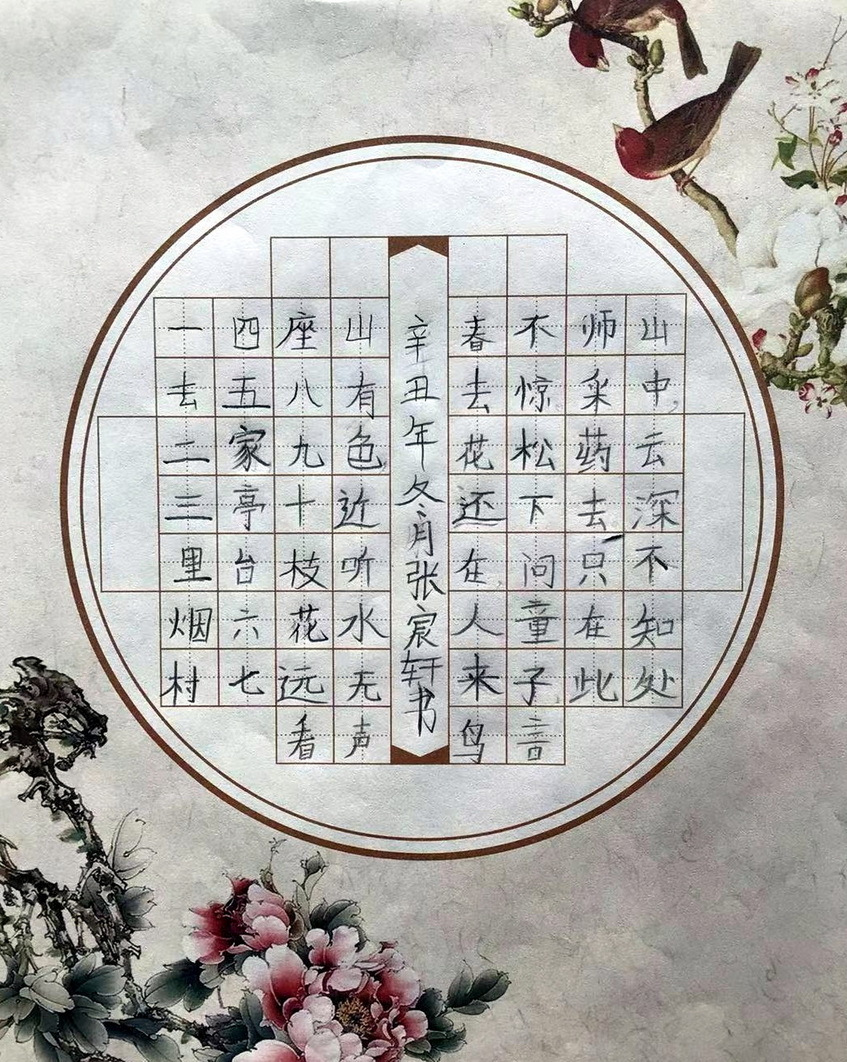 一去二三里烟村
四五家亭台六七
座八九十枝花远看
山有色近听水无声
辛丑年冬月张宸轩书
春去花还在人来鸟
不惊松下问童子音
师采药去只在此
山中，云深不知处